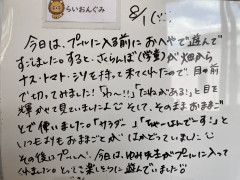 らいおんぐみ
8/1(
今日は、プールに入る前におへやで遊んで
すごしました。すると、さくらんぼ(学童)が畑から
ナス・トマト・シソを持って来てくれたので、目の前
で切ってみました!「わ〜!!」「たねがある!」と目を
輝かせて見ていましたよ そして、そのままおままごと
で使いました。「サラダ〜」「ちゃーはんでーす!」と
いつも以上おままごとが はかどっていました
その後はプールへ。今日は、ゆみ先生がプールに入って
くれました。とっても楽しそうに遊んでいました